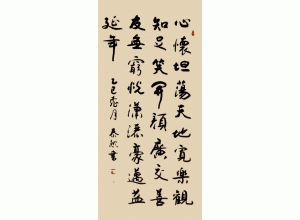 心懷坦蕩天地寬樂觀
知足笑開顏廣交善
友無窮悅瀟灑豪邁益
延年
乙巳荷月泰然書